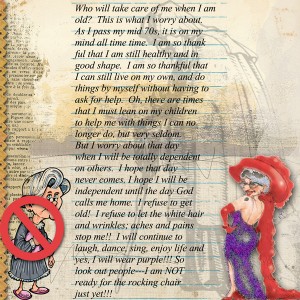 Who will take care of me when I am
old?  This is what I worry about.
As I pass my mid 70s, it is on my
mind all time time.  I am so thank
ful that I am still healthy and in
good shape.  I am so thankful that
I can still live on my own, and do
things by myself without having to
ask for help.  Oh, there are times
that I must lean on my children
to help me with things I can no
longer do, but very seldom.
But I worry about that day
when I will be totally dependent
on others.  I hope that day
never comes. I hope I will be
independent until the day God
calls me home.  I refuse to get
old!  I refuse to let the white hair
and wrinkles; aches and pains
stop me!!  I will continue to
laugh, dance, sing, enjoy life and
yes, I will wear purple!!! So
look out people---I am NOT
ready for the rocking chair
just yet!!!